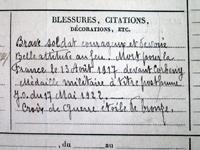 BLESSURES, CITATIONS,
DÉCORATIONS, ETC.
Brave soldat courageux et dévoué
belle attitude au feu. Mort pour la
France le 13 Août 1917 devant Corbeny
Médaille militaire à titre posthume
J.O. du 17 Mai 1922.
Croix de Guerre étoile de bronze.
du au